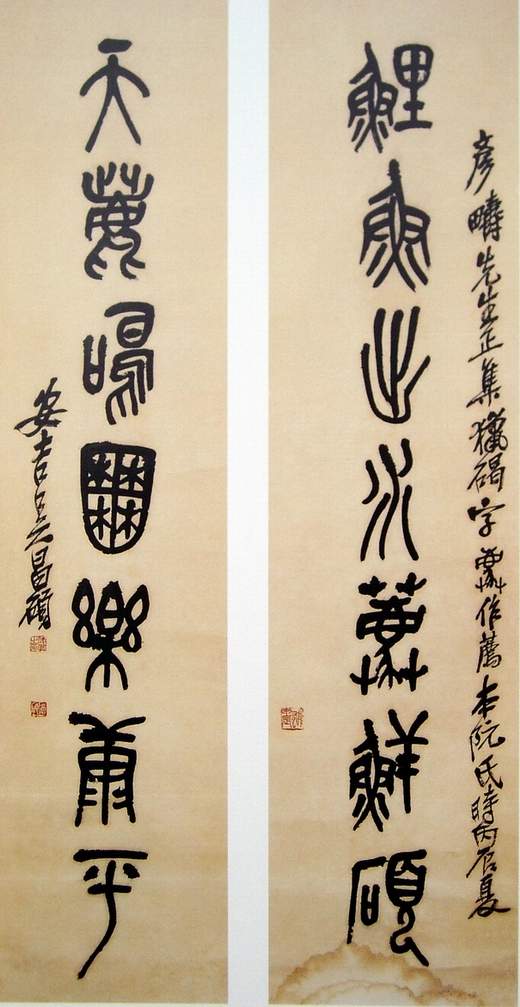 彥疇先生正集獵碣字作薦本阮氏時丙辰夏
鯉魚出水薦鮮碩
天鹿鳴囿樂康平
安吉吳昌碩